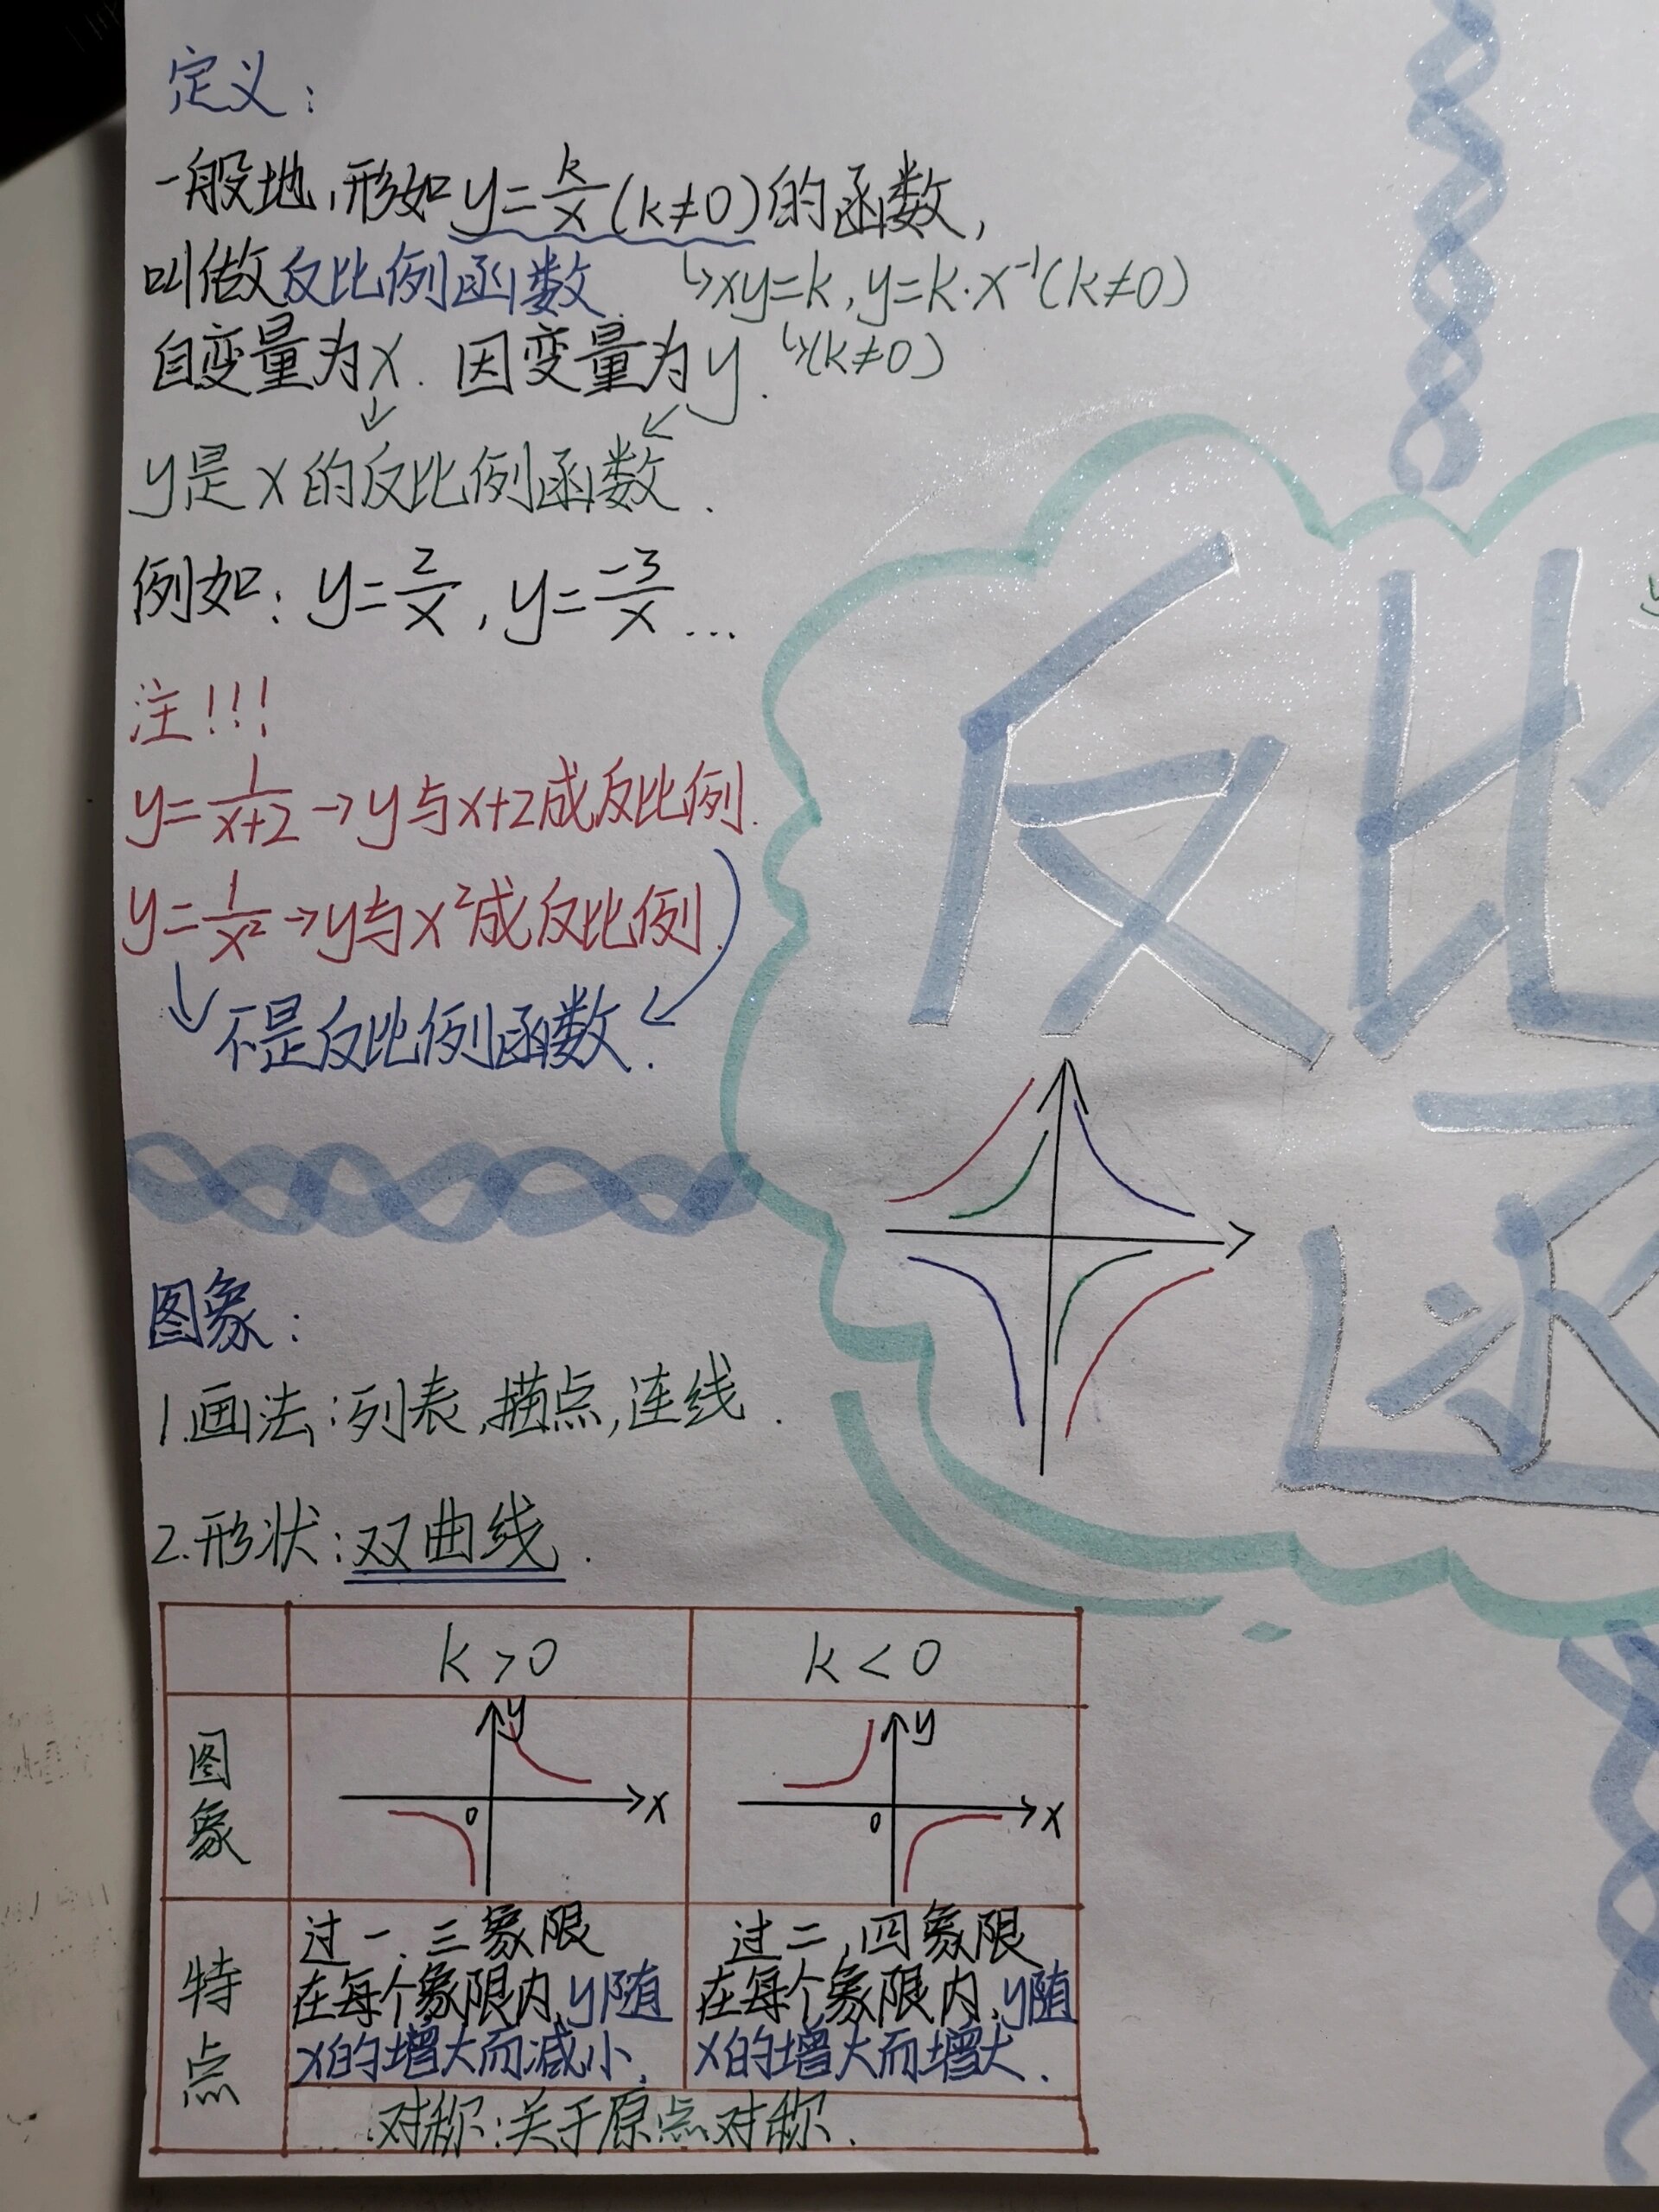 定义:
一般地,形如y=k/x(k≠0)的函数,
叫做反比例函数. ↳xy=k,y=k·x⁻¹(k≠0)
自变量为x. 因变量为y. ↳(k≠0)
y是x的反比例函数.
例如: y=2/x, y=-3/x...
注!!!
y=1/(x+2)→y与x+2成反比例.
y=1/x²→y与x²成反比例.
不是反比例函数.
反比
函
图象:
1.画法:列表,描点,连线.
2.形状:双曲线.
k>0 k<0
图象
y x 0
y x 0
特点
过一、三象限
在每个象限内,y随
x的增大而减小.
过二,四象限
在每个象限内,y随
x的增大而增大.
对称:关于原点对称.